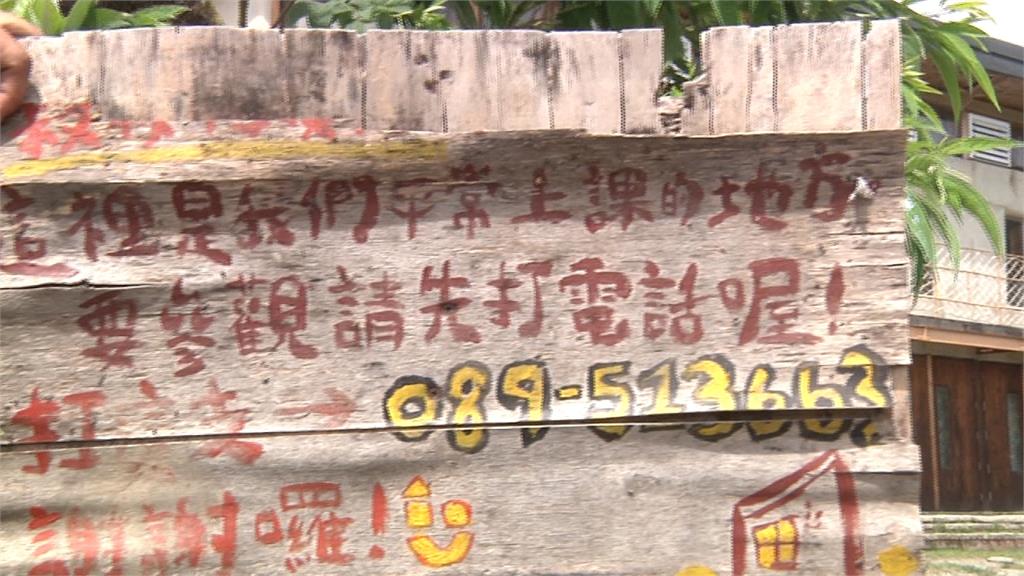 這裡是我們平常上課的地方
要參觀請先打電話喔!
打 → 089-513663
謝謝囉!